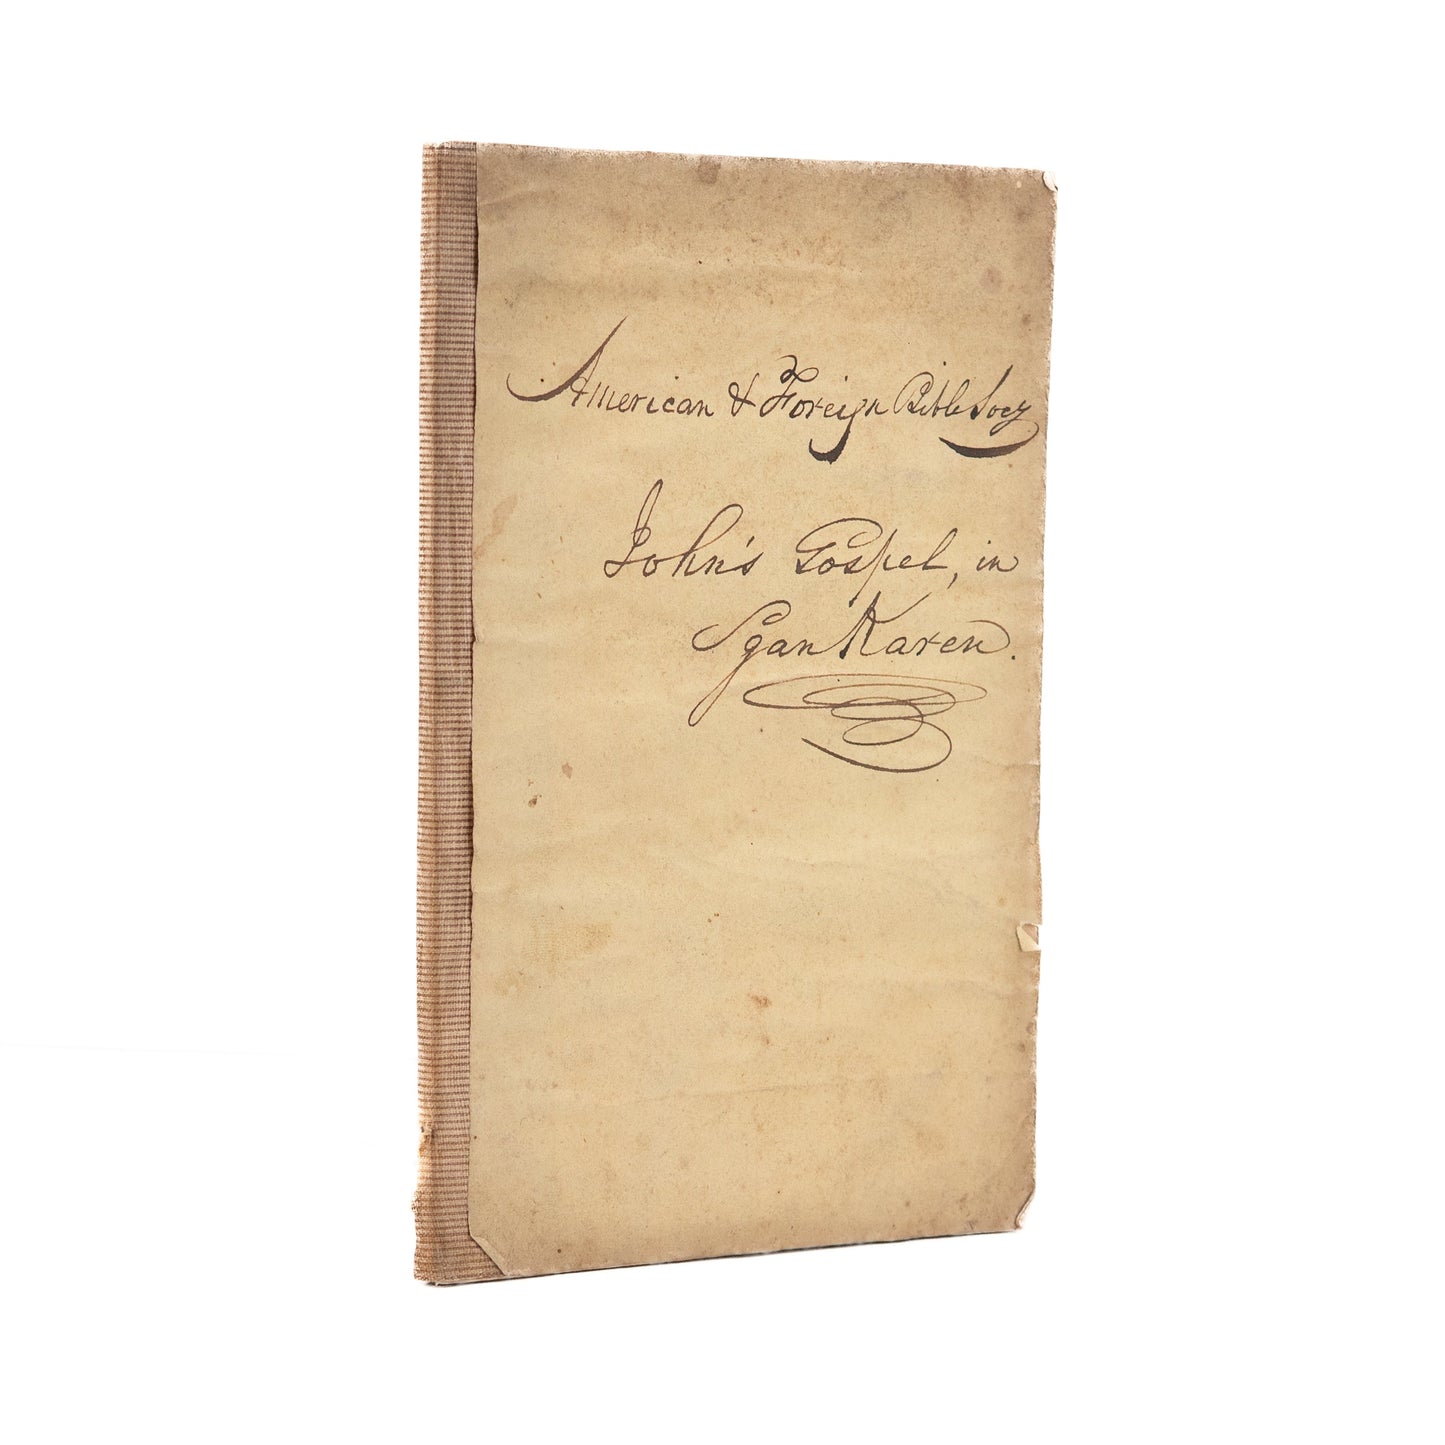 American & Foreign Bible Socy
John's Gospel, in
Sgan Karen.